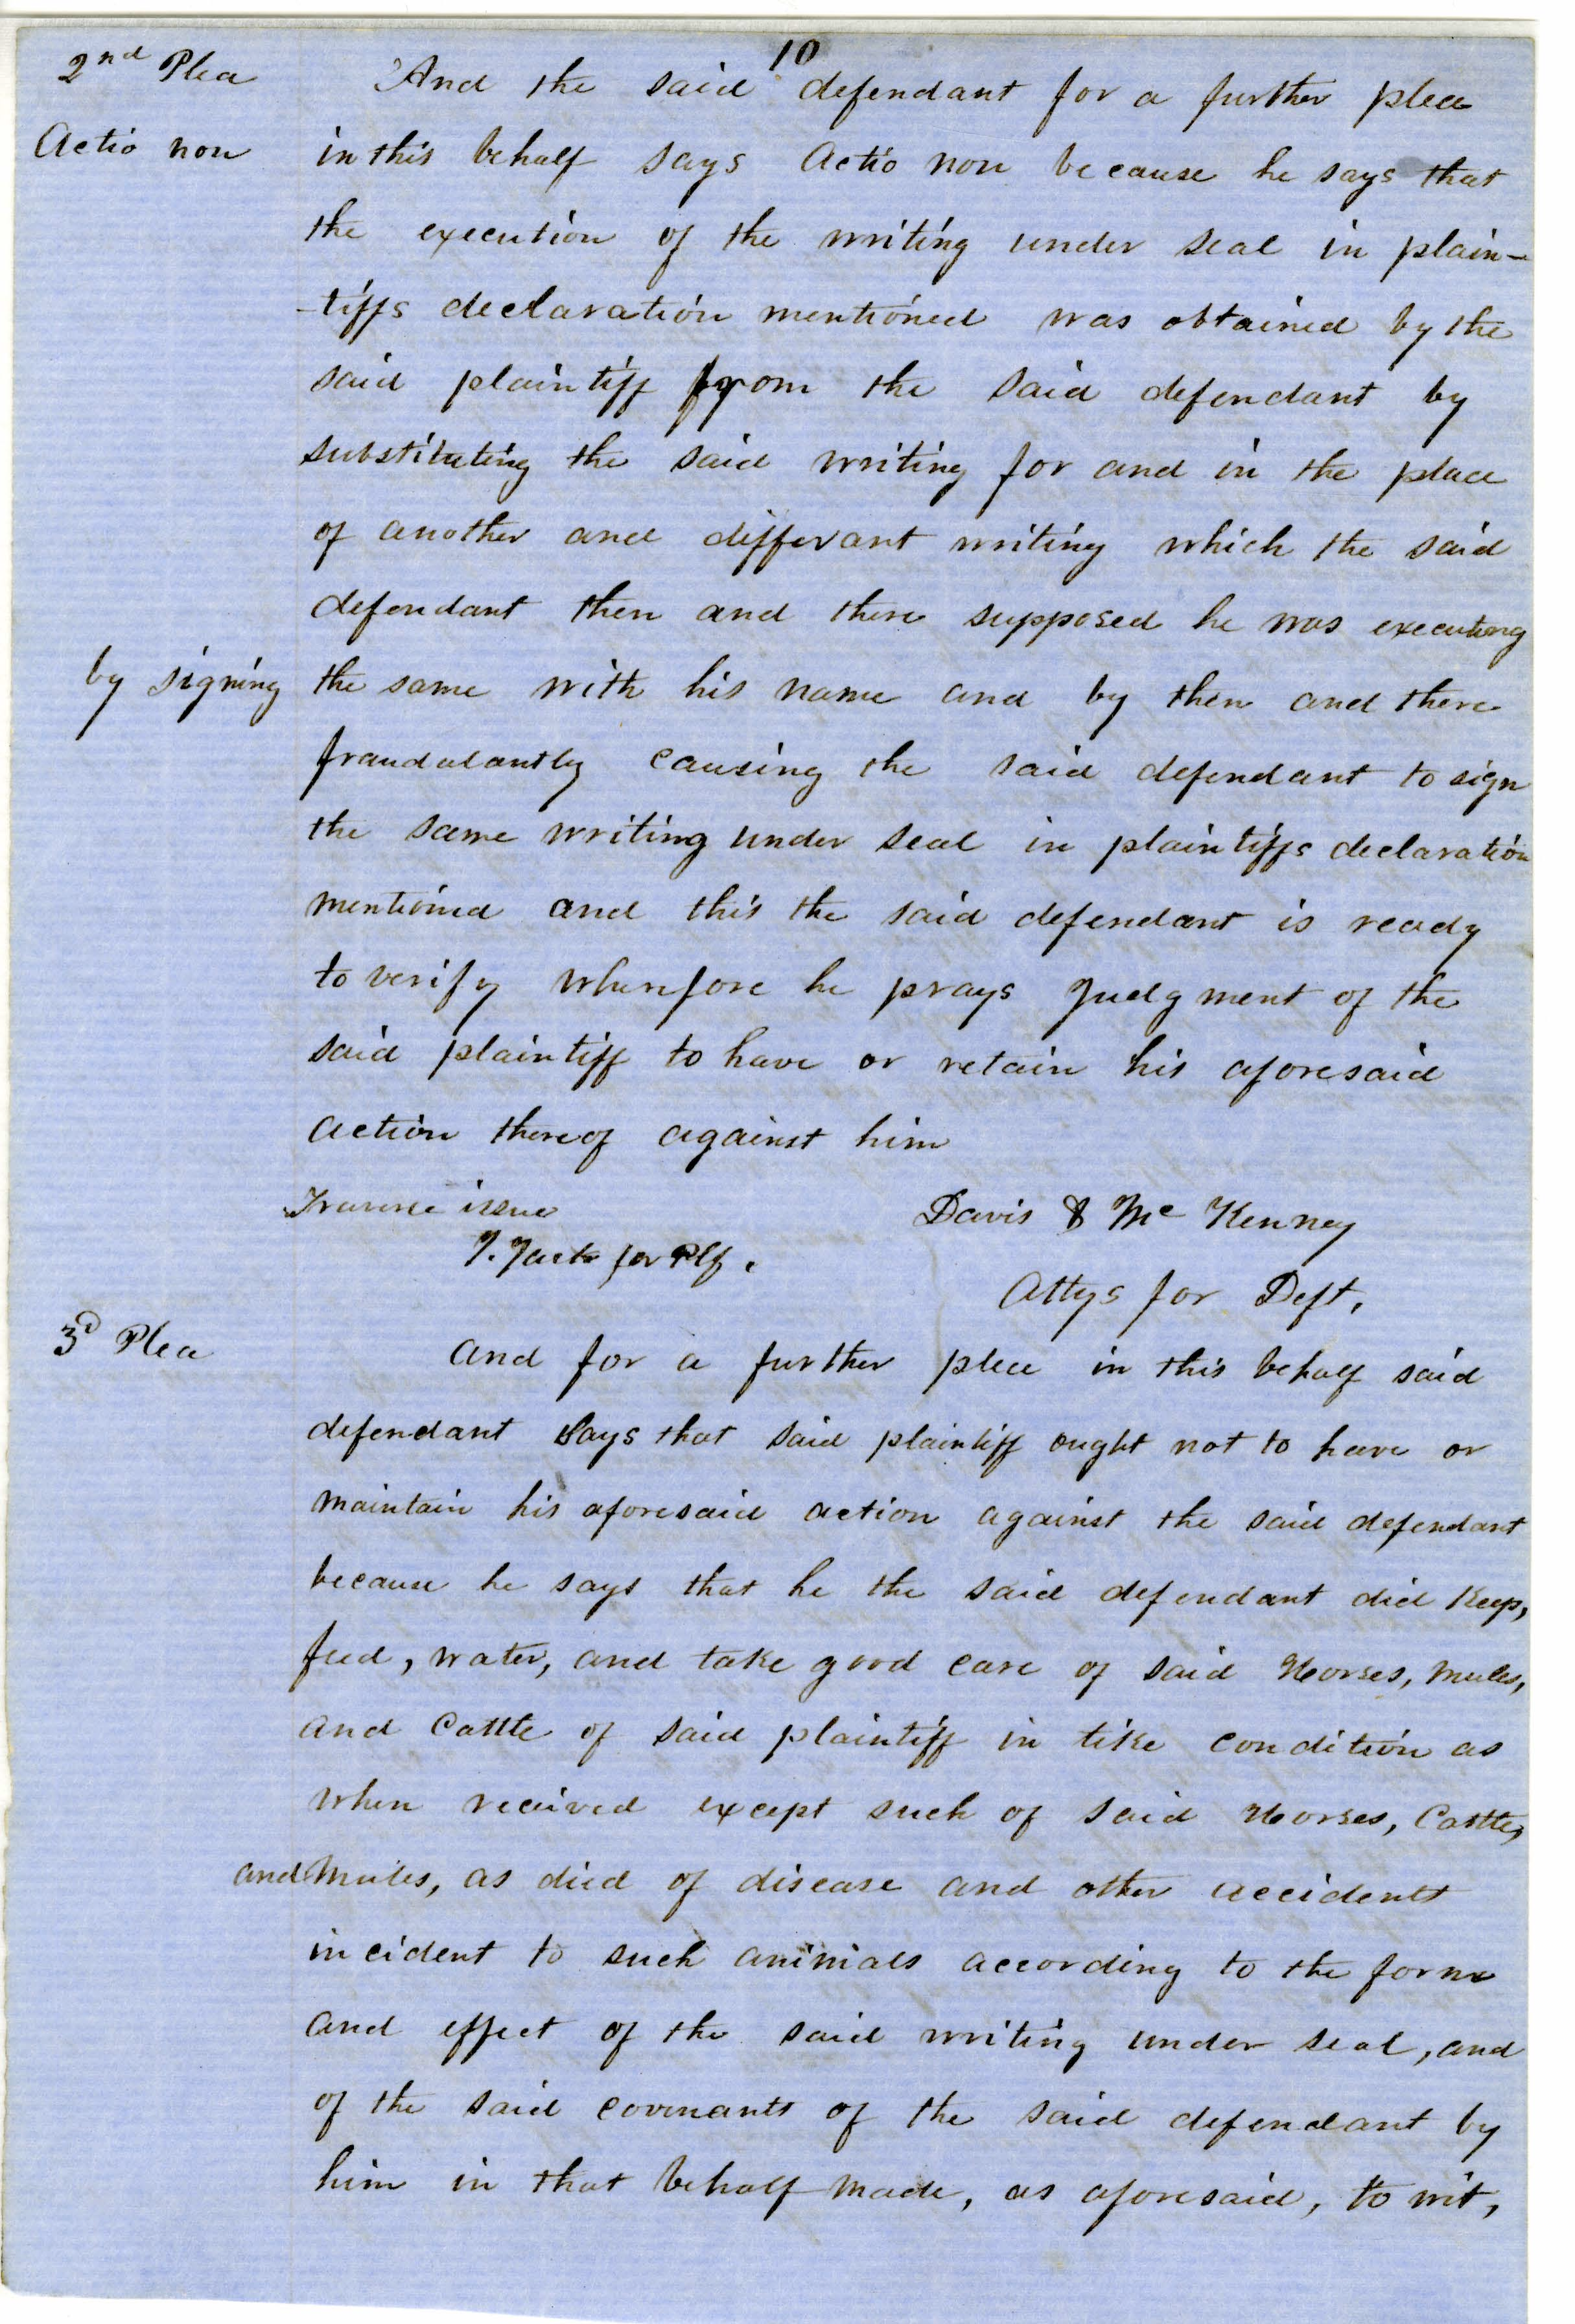 10
2nd Plea And the said defendant for a further plea
Actio non in this behalf says Actio non because he says that
the execution of the writing under seal in plain-
-tiffs declaration mentioned was obtained by the
said plaintiff from the said defendant by
substituting the said writing for and in the place
of another and differant writing which the said
defendant then and there supposed he was executing
by signing the same with his name and by then and there
fraudulantly causing the said defendant to sign
the same writing under seal in plaintiffs declaration
mentioned and this the said defendant is ready
to verify wherefore he prays Judgment of the
said plaintiff to have or retain his aforesaid
action thereof against him
Traverse issue Davis & Mc Kenney
for Plf.
Attys for Deft,
3d Plea And for a further plea in this behalf said
defendant Says that said plaintiff ought not to have or
maintain his aforesaid action against the said defendant
because he says that he the said defendant did Keep,
feed, water, and take good care of said Horses, mules,
and Cattle of said plaintiff in like condition as
when received except such of said Horses, Cattle,
and Mules, as died of disease and other accidents
incident to such animals according to the form
and effect of the said writing under seal, and
of the said covenants of the said defendant by
him in that behalf made, as aforesaid, to wit,